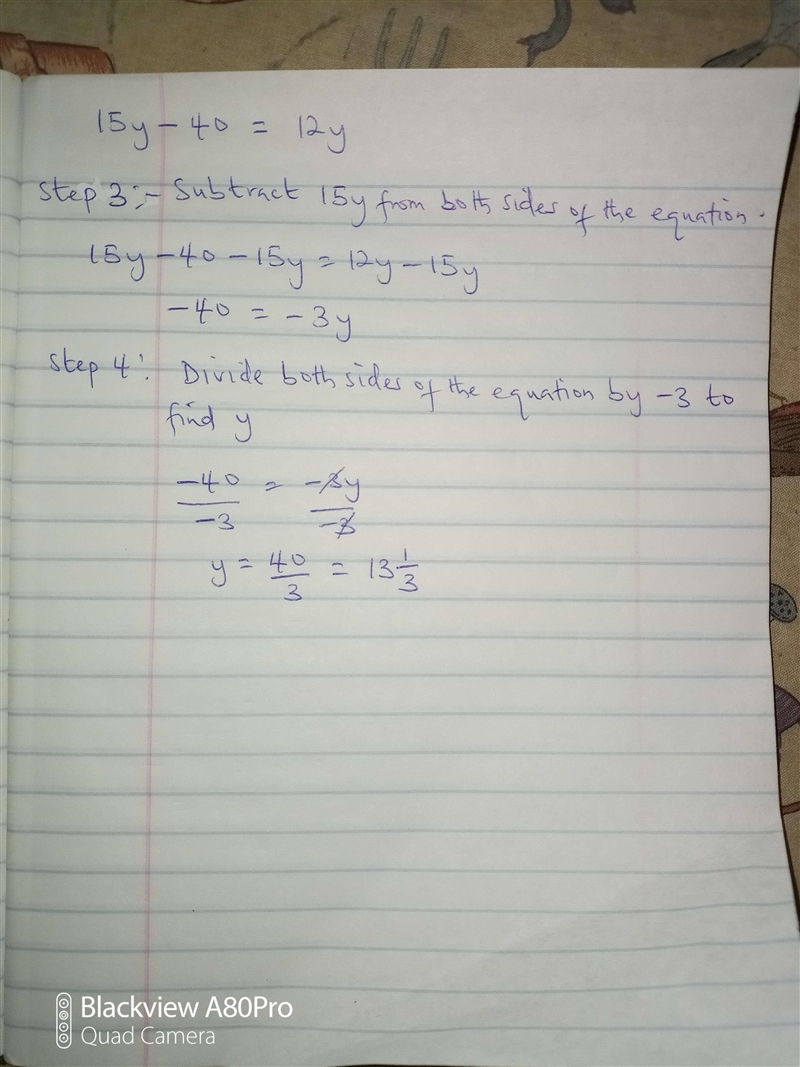 15y - 40 = 12y
Step 3:- Subtract 15y from both sides of the equation.
15y - 40 - 15y = 12y - 15y
-40 = -3y
Step 4: Divide both sides of the equation by -3 to
find y
-40/-3 = -3y/-3
y = 40/3 = 13 1/3
Blackview A80Pro
Quad Camera